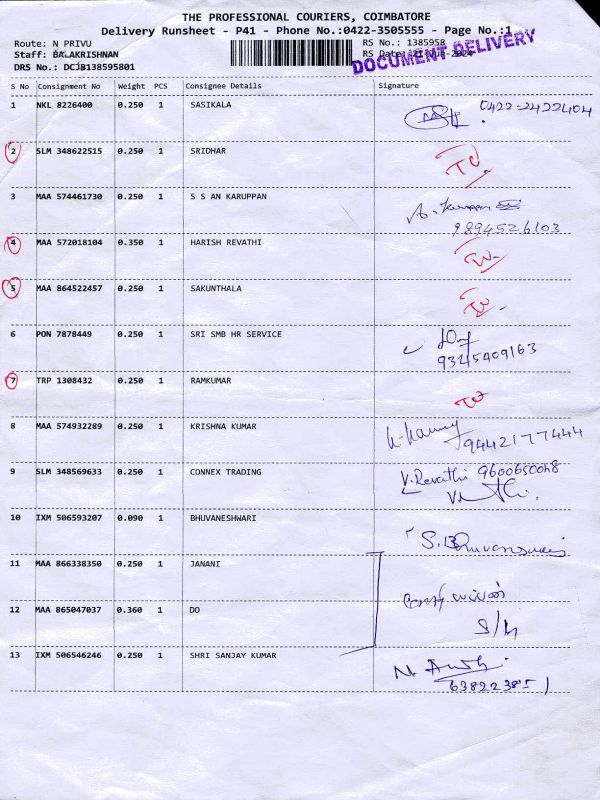 THE PROFESSIONAL COURIERS, COIMBATORE
Delivery Runsheet - P41 - Phone No.:0422-3505555 - Page No.:1
Route: N PRIVU RS No.: 1385958
Staff: BALAKRISHNAN RS Date: 21-Jun-2024
DOCUMENT DELIVERY
DRS No.: DCJB138595801
S No Consignment No Weight PCS Consignee Details Signature
1 NKL 8226400 0.250 1 SASIKALA 0422-2422404
2 SLM 348622515 0.250 1 SRIDHAR
3 MAA 574461730 0.250 1 S S AN KARUPPAN
9894526103
4 MAA 572018104 0.350 1 HARISH REVATHI
5 MAA 864522457 0.250 1 SAKUNTHALA
6 PON 7878449 0.250 1 SRI SMB HR SERVICE
9345409163
7 TRP 1308432 0.250 1 RAMKUMAR
8 MAA 574932289 0.250 1 KRISHNA KUMAR 9442177444
9 SLM 348569633 0.250 1 CONNEX TRADING V.Revathi 9600650048
10 IXM 506593207 0.090 1 BHUVANESHWARI S.Bhuvaneswari
11 MAA 866338350 0.250 1 JANANI
12 MAA 865047037 0.360 1 DO
13 IXM 506546246 0.250 1 SHRI SANJAY KUMAR